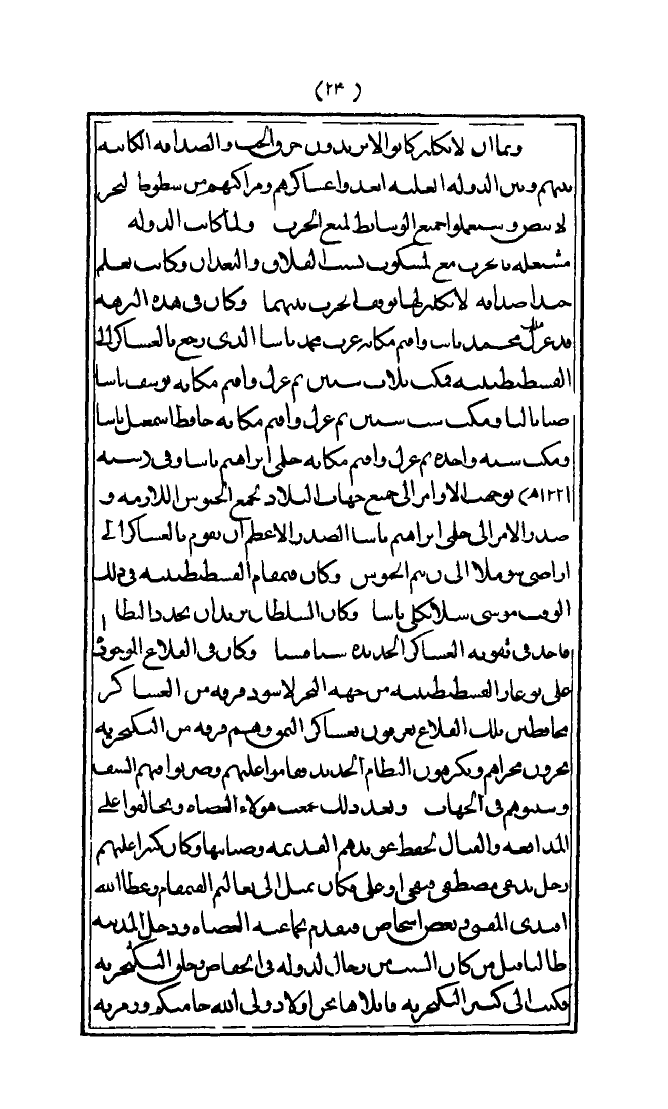 (٢٤)
وبما ان الانكليز كانوا لا يريدون خرق الحب والصداقه الكاينه
بينهم وبين الدوله العليه ابعدوا عساكرهم ومراكبهم من سطوط البحر
الابيض واستعملوا جميع الوسايط لمنع الحرب ولما كانت الدوله
مشتغله بالحرب مع المسكوب بسبب الفلاق والبغدان وكانت تعلم
جيدا صداقه الانكليز لها توقف الحرب بينهما وكان في هذه البرهه
قد عزل محمد باشا واقيم مكانه عرب محمد باشا الذي رجع بالعساكر الى
القسطنطينيه فمكث ثلاث سنين ثم عزل واقيم مكانه يوسف باشا
ضيا ثانيا ومكث ست سنين ثم عزل واقيم مكانه حافظ اسمعيل باشا
ومكث سنه واحده ثم عزل واقيم مكانه حلمي ابراهيم باشا وفي (سنه
١٢٢١ه) توجهت الاوامر الى جميع جهات البلاد لجمع الجيوش اللازمه و
صدر الامر الى حلمي ابراهيم باشا الصدر الاعظم ان يقوم بالعساكر الى
اراضي الى رسم الجيوش وكان قيمقام القسطنطينيه في ذلك
الوقت موسى باشا وكان السلطان يريد ان يجدد النظام
فاخذ في تقويه العساكر الجديده شيا فشيا وكان في القلاع الموجوده
على بوغاز القسطنطينيه من جهه البحر الاسود فرقه من العساكر
محافظين تلك القلاع يعرفون بعساكر اليمق وهم فرقه من الينكجريه
يجرون مجراهم ويكرهون النظام الجديد فقاموا عليهم وضربوا فيهم السيف
وشتتوهم في الجهات وبعد ذلك تجمعت هولاء العصاه وتحالفوا على
المدافعه والقتال لحفظ عوايدهم القديمه وصيانتها وكان كبيرا عليهم
رجل يدعى مصطفى وكان يميل الى القيمقام وعطا الله
افندي المفتي وبعض اشخاص فتقدم بجماعته العصاه ودخل المدينه
طالبا قتل من كان السبب من رجال الدوله في انخفاض وجاق الينكجريه
فكتب الى كبير الينكجريه قايلا ها نحن اولاد ولي الله حاجي بكتاش